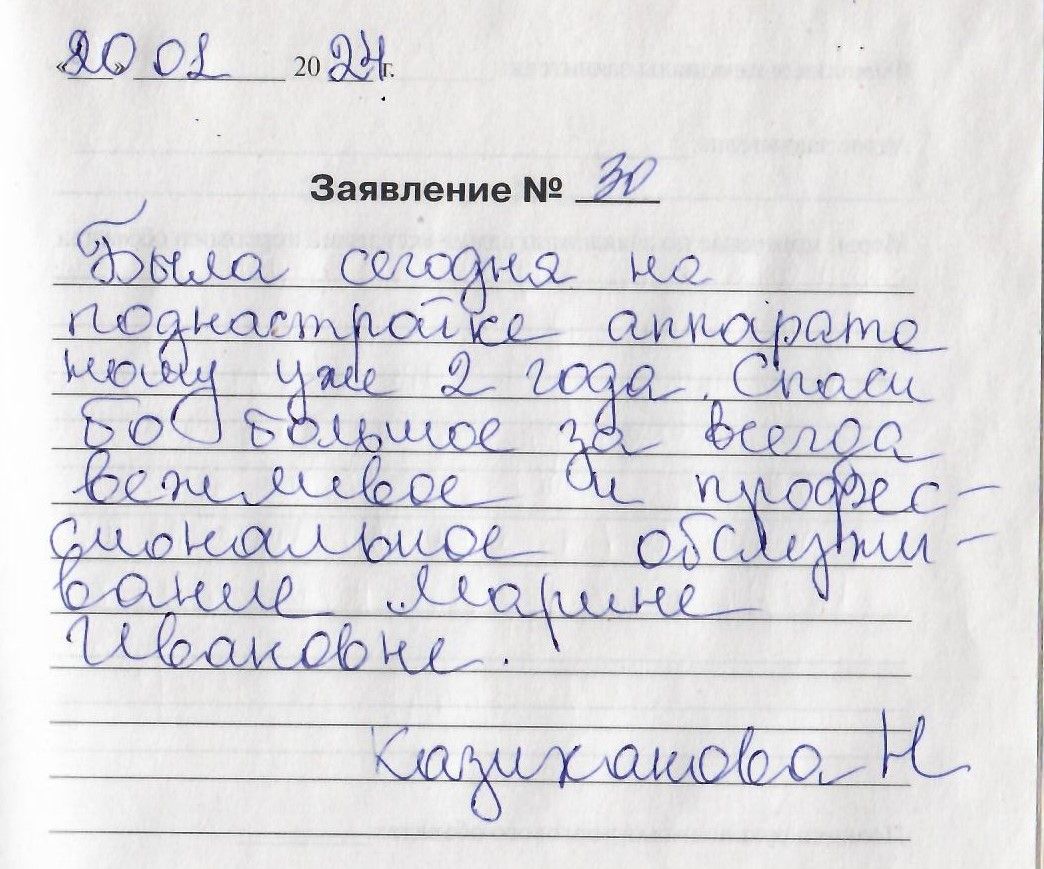 «20» 01 2024 г.
Заявление № 30
Была сегодня на
поднастройке аппарата
ношу уже 2 года. Спаси
бо большое за всегда
вежливое и профес-
сиональное обслужи-
вание Марине
Ивановне.
Казиханова Н